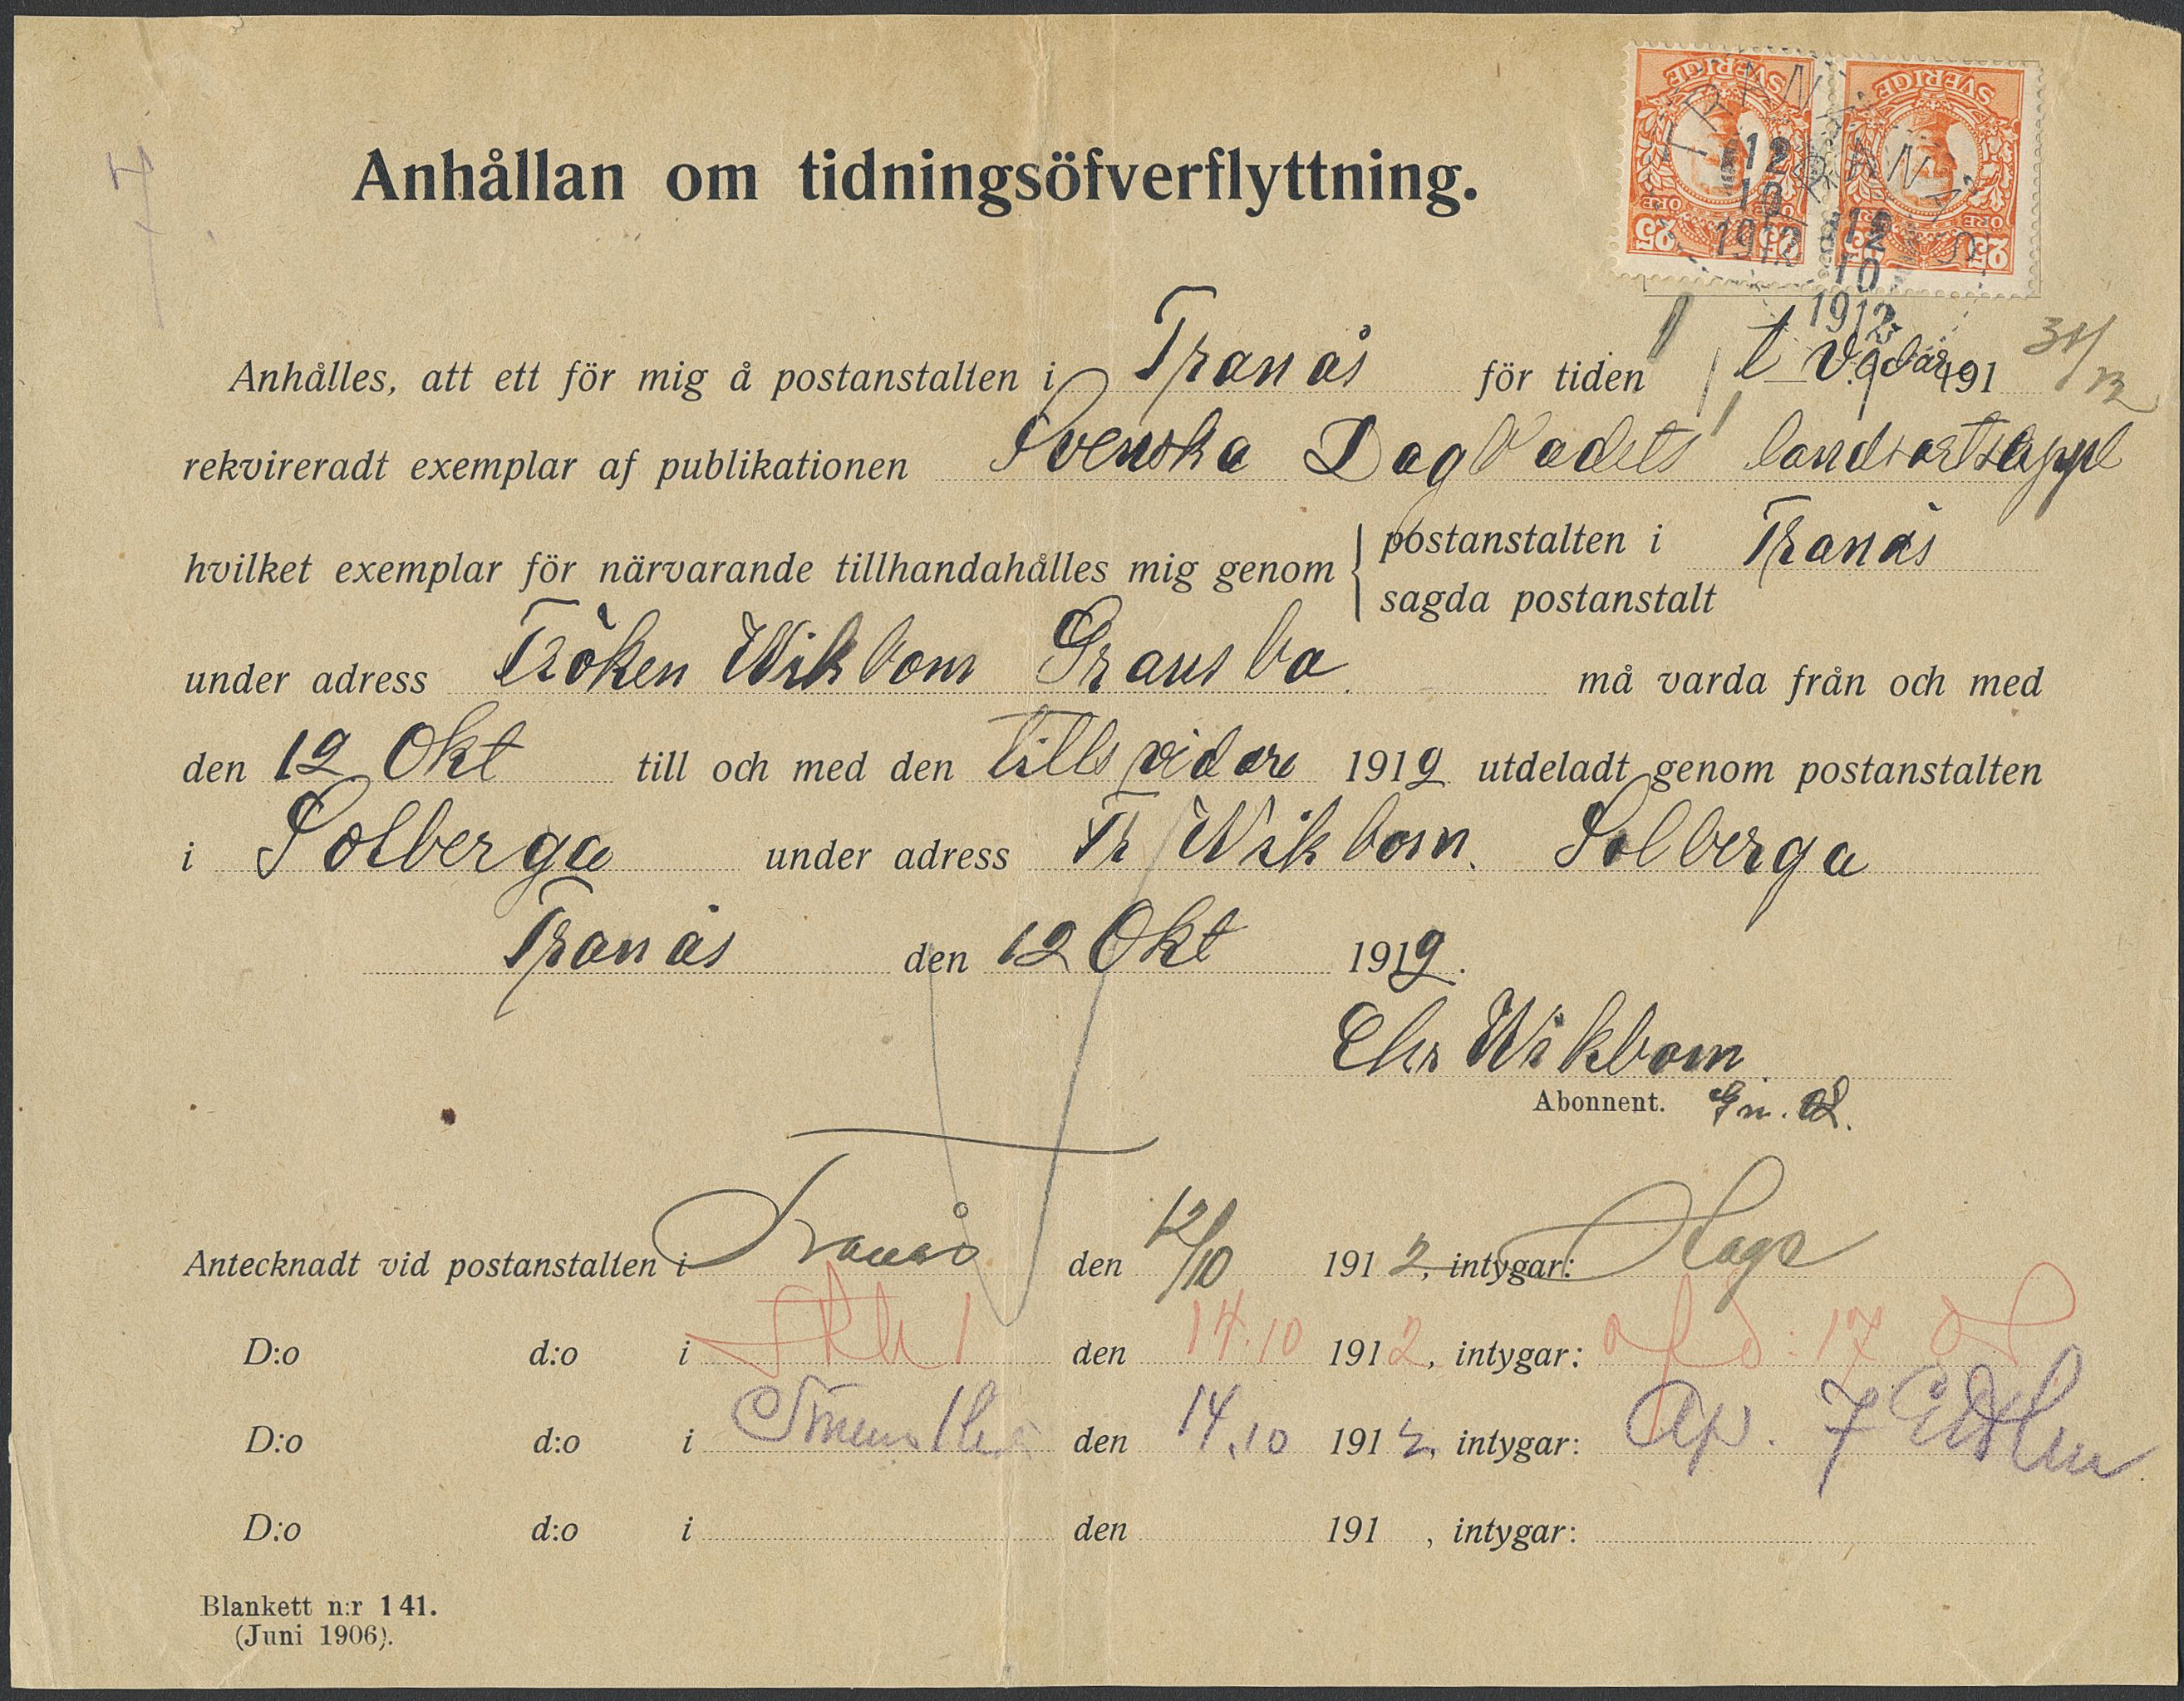 SVERIGE SVERIGE
ÖRE ÖRE
25 25 25 25
TRANÅS
12
10
1912
TRANÅS
12
10
1912
Anhållan om tidningsöfverflyttning.
Anhålles, att ett för mig å postanstalten i Tranås för tiden t. v. 191 31/12
rekvireradt exemplar af publikationen Svenska Dagbladets landsortsuppl
hvilket exemplar för närvarande tillhandahålles mig genom { postanstalten i Tranås
sagda postanstalt
under adress Fröken Wikbom Gransbo må varda från och med
den 12 Okt till och med den tillsvidare 1912 utdeladt genom postanstalten
i Solberga under adress Fr Wikbom. Solberga
Tranås den 12 Okt 1912.
Chr Wikbom
Abonnent.
Antecknadt vid postanstalten i Tranås den 12/10 1912, intygar:
D:o d:o i Sthlm 1 den 14.10 1912, intygar:
D:o d:o i den 14.10 1912, intygar:
D:o d:o i den 191 , intygar:
Blankett n:r 141.
(Juni 1906).